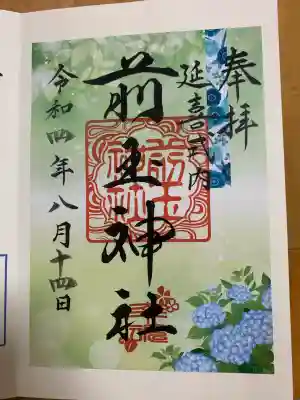 奉拝
延喜式内
前玉神社
令和四年八月十四日
前玉神社